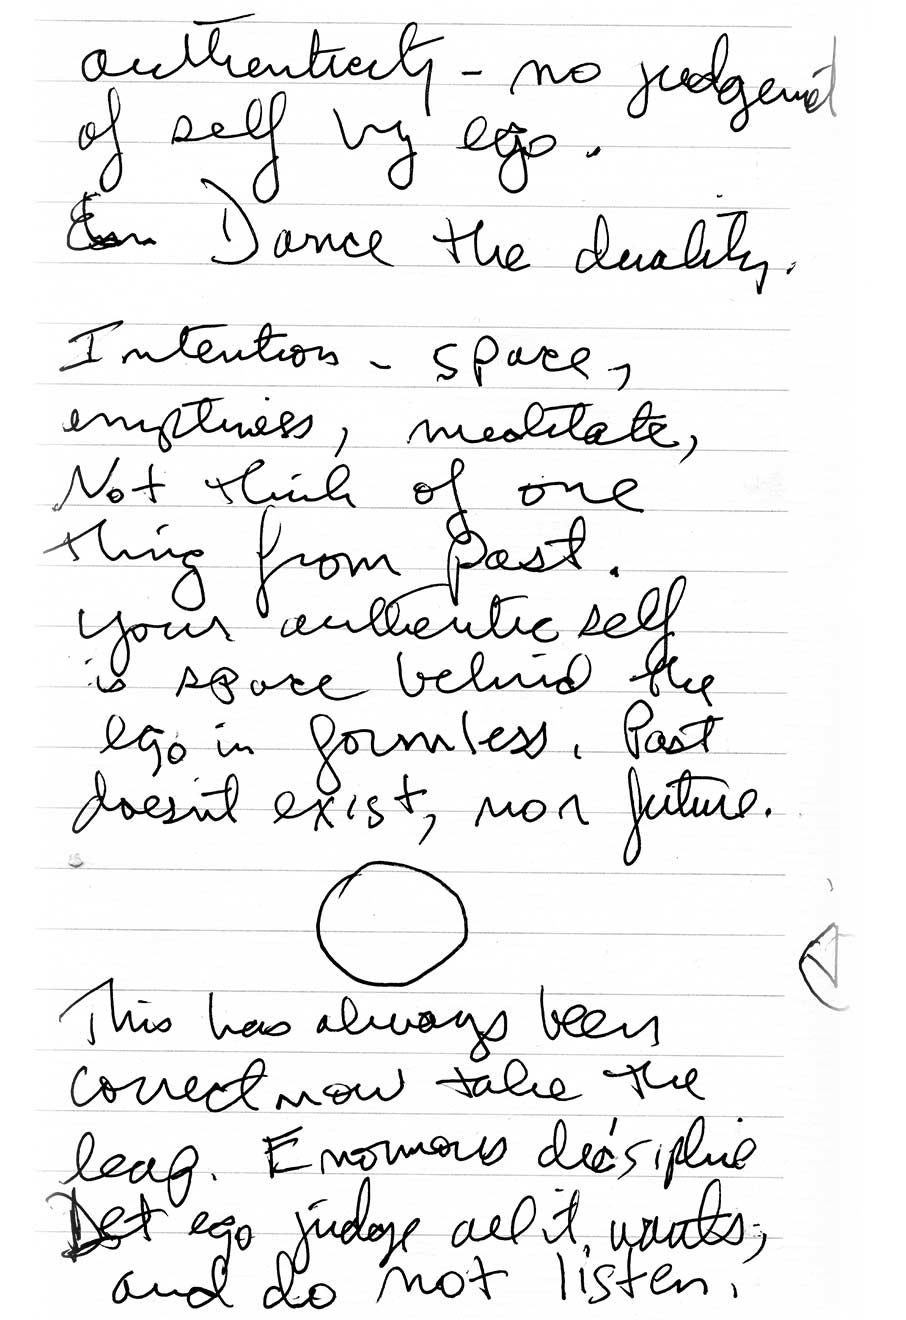 authenticity - no judgement
of self by ego.
Dance the duality.
Intention - space,
emptiness, meditate,
Not think of one
thing from past.
your authentic self
is space behind the
ego in formless. Past
doesn't exist, nor future.
This has always been
correct now take the
leap. Enormous decsipline
Let ego judge all it wants,
and do not listen.